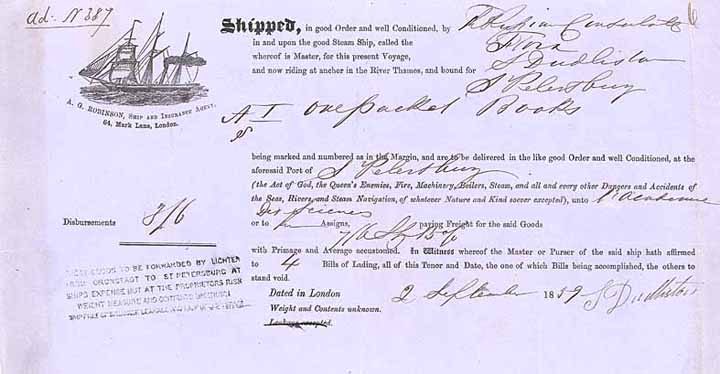 ad. N 387
Shipped, in good Order and well Conditioned, by Russian Consulate
in and upon the good Steam Ship, called the Flora
whereof is Master, for this present Voyage, S Dudliston
and now riding at anchor in the River Thames, and bound for
S Petersburg
A. G. ROBINSON, SHIP AND INSURANCE AGENT,
64, Mark Lane, London.
A I one packet Books
S
being marked and numbered as in the Margin, and are to be delivered in the like good Order and well Conditioned, at the
aforesaid Port of S Petersburg
(the Act of God, the Queen's Enemies, Fire, Machinery, Boilers, Steam, and all and every other Dangers and Accidents of
the Seas, Rivers, and Steam Navigation, of whatever Nature and Kind soever excepted), unto l'Academie
des Sciences
Disbursements 3/6
or to Assigns, paying Freight for the said Goods
7/6
with Primage and Average accustomed. In Witness whereof the Master or Purser of the said ship hath affirmed
to 4 Bills of Lading, all of this Tenor and Date, the one of which Bills being accomplished, the others to
stand void.
GOODS TO BE FORWARDED BY LIGHTER
FROM CRONSTADT TO ST PETERSBURG AT
SHIPS EXPENSE BUT AT THE PROPRIETORS RISK
WEIGHT MEASURE AND CONTENTS UNKNOWN
Dated in London 2 September 1859 S Dudliston
Weight and Contents unknown.
Leakage excepted.